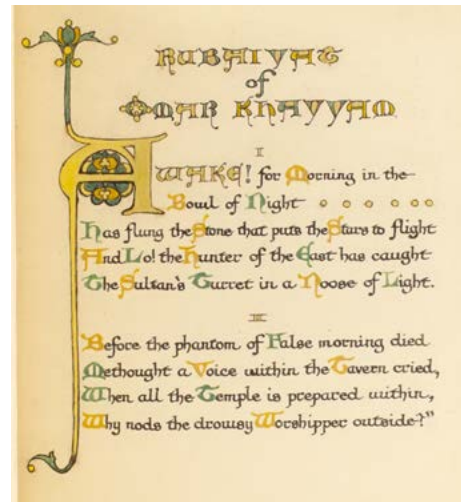 RUBAIYAT
of
OMAR KHAYYAM
I
AWAKE! for Morning in the
Bowl of Night
Has flung the Stone that puts the Stars to flight
And Lo! the Hunter of the East has caught
The Sultan's Turret in a Noose of Light.
II
Before the phantom of False morning died
Methought a Voice within the Tavern cried,
When all the Temple is prepared within,
Why nods the drowsy Worshipper outside?"